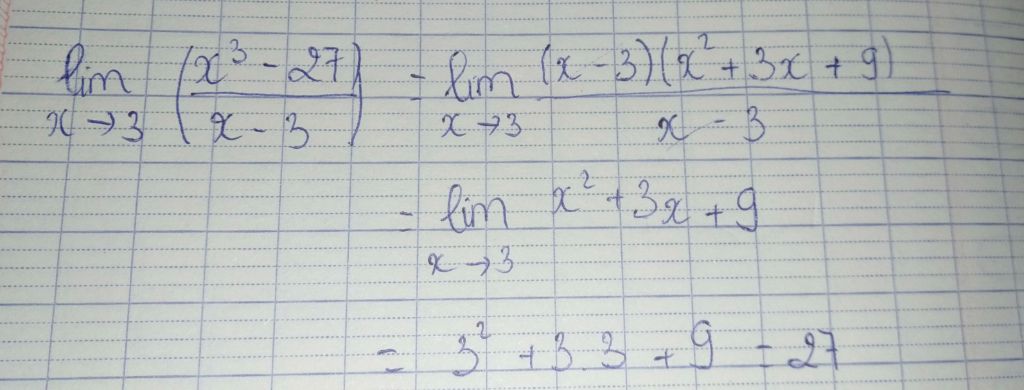 lim x→3 (x³ - 27 / x - 3) = lim x→3 (x - 3)(x² + 3x + 9) / x - 3
= lim x→3 x² + 3x + 9
= 3² + 3.3 + 9 = 27